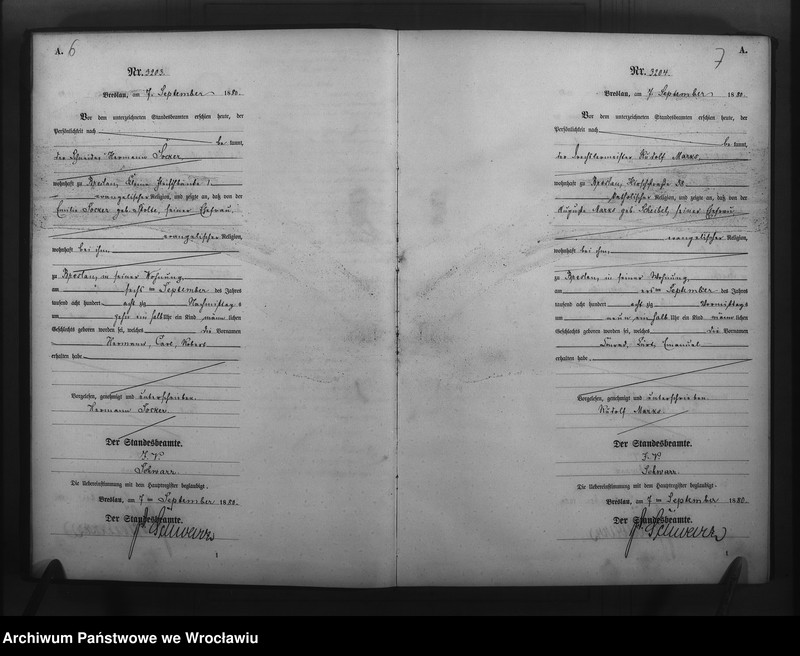 A. 6
Nr. 3203.
Breslau, am 7. September 1880.
Vor dem unterzeichneten Standesbeamten erschien heute, der
Persönlichkeit nach
be kannt,
der Hermann
wohnhaft zu Breslau,
evangelischer Religion, und zeigte an, daß von der
Emilie geb. seiner Ehefrau
evangelischer Religion,
wohnhaft bei ihm
zu Breslau, in seiner Wohnung,
am September des Jahres
tausend acht hundert acht zig Nachmittags
um zehn ein halb Uhr ein Kind männ lichen
Geschlechts geboren worden sei, welches die Vornamen
Hermann, Carl, Robert
erhalten habe.
Vorgelesen, genehmigt und unterschrieben.
Hermann
Der Standesbeamte.
J. V.
Schwarz
Die Uebereinstimmung mit dem Hauptregister beglaubigt.
Breslau, am 7 ten September 1880.
Der Standesbeamte.
J. V. Schwarz
1
7 A.
Nr. 3204.
Breslau, am 7. September 1880.
Vor dem unterzeichneten Standesbeamten erschien heute, der
Persönlichkeit nach
be kannt,
der Rudolf Marx
wohnhaft zu Breslau, Hirschstraße 30
katholischer Religion, und zeigte an, daß von der
Auguste Marx geb. Scheibel, seiner Ehefrau
evangelischer Religion,
wohnhaft bei ihm
zu Breslau, in seiner Wohnung,
am September des Jahres
tausend acht hundert acht zig Vormittags
um neun ein halb Uhr ein Kind männ lichen
Geschlechts geboren worden sei, welches die Vornamen
Emanuel
erhalten habe.
Vorgelesen, genehmigt und unterschrieben.
Rudolf Marx
Der Standesbeamte.
J. V.
Schwarz
Die Uebereinstimmung mit dem Hauptregister beglaubigt.
Breslau, am 7 ten September 1880.
Der Standesbeamte.
J. V. Schwarz
1
Archiwum Państwowe we Wrocławiu